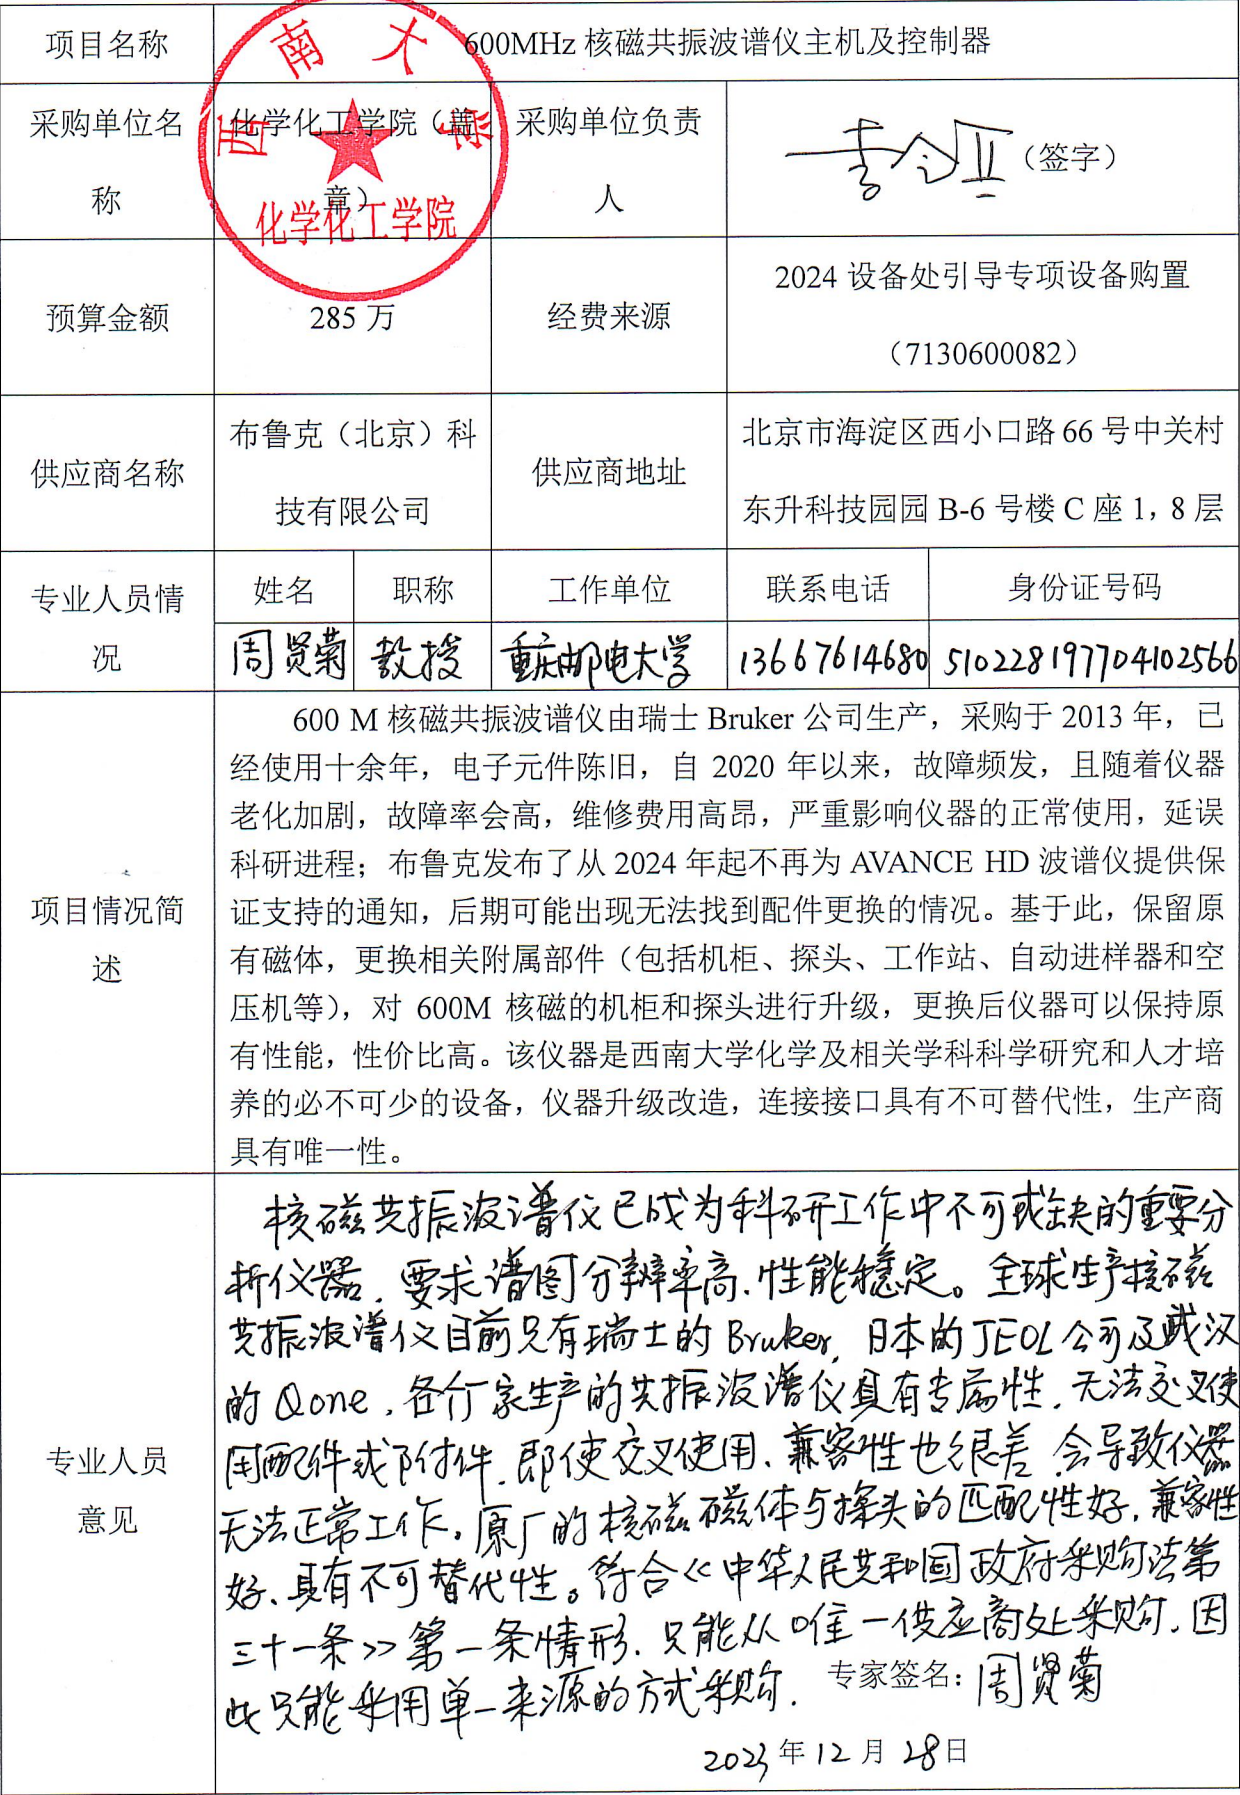 项目名称
600MHz 核磁共振波谱仪主机及控制器
采购单位名
称
化学化工学院（盖
章）
西南大学
化学化工学院
采购单位负责
人
（签字）
预算金额
285 万
经费来源
2024 设备处引导专项设备购置
（7130600082）
供应商名称
布鲁克（北京）科
技有限公司
供应商地址
北京市海淀区西小口路 66 号中关村
东升科技园园 B-6 号楼 C 座 1，8 层
专业人员情
况
姓名
职称
工作单位
联系电话
身份证号码
周贤菊
教授
重庆邮电大学
13667614680
510228197704102566
项目情况简
述
600 M 核磁共振波谱仪由瑞士 Bruker 公司生产，采购于 2013 年，已
经使用十余年，电子元件陈旧，自 2020 年以来，故障频发，且随着仪器
老化加剧，故障率会高，维修费用高昂，严重影响仪器的正常使用，延误
科研进程；布鲁克发布了从 2024 年起不再为 AVANCE HD 波谱仪提供保
证支持的通知，后期可能出现无法找到配件更换的情况。基于此，保留原
有磁体，更换相关附属部件（包括机柜、探头、工作站、自动进样器和空
压机等），对 600M 核磁的机柜和探头进行升级，更换后仪器可以保持原
有性能，性价比高。该仪器是西南大学化学及相关学科科学研究和人才培
养的必不可少的设备，仪器升级改造，连接接口具有不可替代性，生产商
具有唯一性。
专业人员
意见
核磁共振波谱仪已成为科研工作中不可或缺的重要分
析仪器，要求谱图分辨率高、性能稳定。全球生产核磁
共振波谱仪目前只有瑞士的 Bruker，日本的 JEOL 公司及武汉
的 Qone，各个厂家生产的共振波谱仪具有专属性，无法交叉使
用配件或附件，即使交叉使用、兼容性也很差，会导致仪器
无法正常工作。原厂的核磁磁体与探头的匹配性好，兼容性
好、具有不可替代性。符合《中华人民共和国政府采购法第
三十一条》第一条情形，只能从唯一供应商处采购，因
此只能采用单一来源的方式采购。
专家签名：周贤菊
2023 年 12 月 28 日